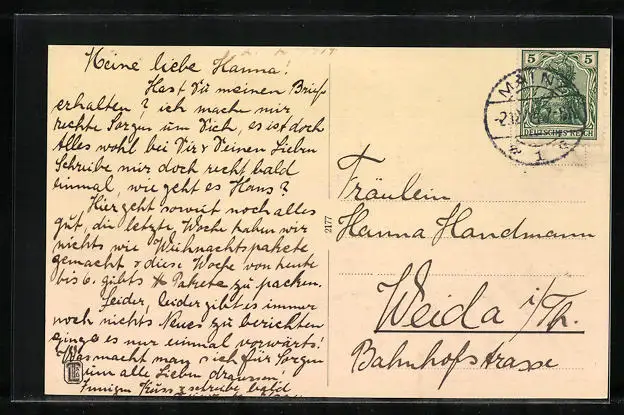 Meine liebe Hanna!
Hast Du meinen Brief
erhalten? ich mache mir
rechte Sorgen um Dich, es ist doch
Alles wohl bei Dir & Deinen Lieben
Schreibe mir doch recht bald
einmal, wie geht es Hans?
Hier geht soweit noch alles
gut, die letzte Woche haben wir
nichts wie Weihnachtspakete
gemacht & diese Woche von heute
bis 6. gibts Pakete zu packen.
Leider, leider gibt es immer
noch nichts Neues zu berichten
ginge es nur einmal vorwärts!
Was macht man sich für Sorgen
um alle Lieben draussen!
Innigen Kuss & schreibe bald
2177
5 5
DEUTSCHES REICH
MAINZ
1
Fräulein
Hanna Handmann
Weida i/Th.
Bahnhofstrasse